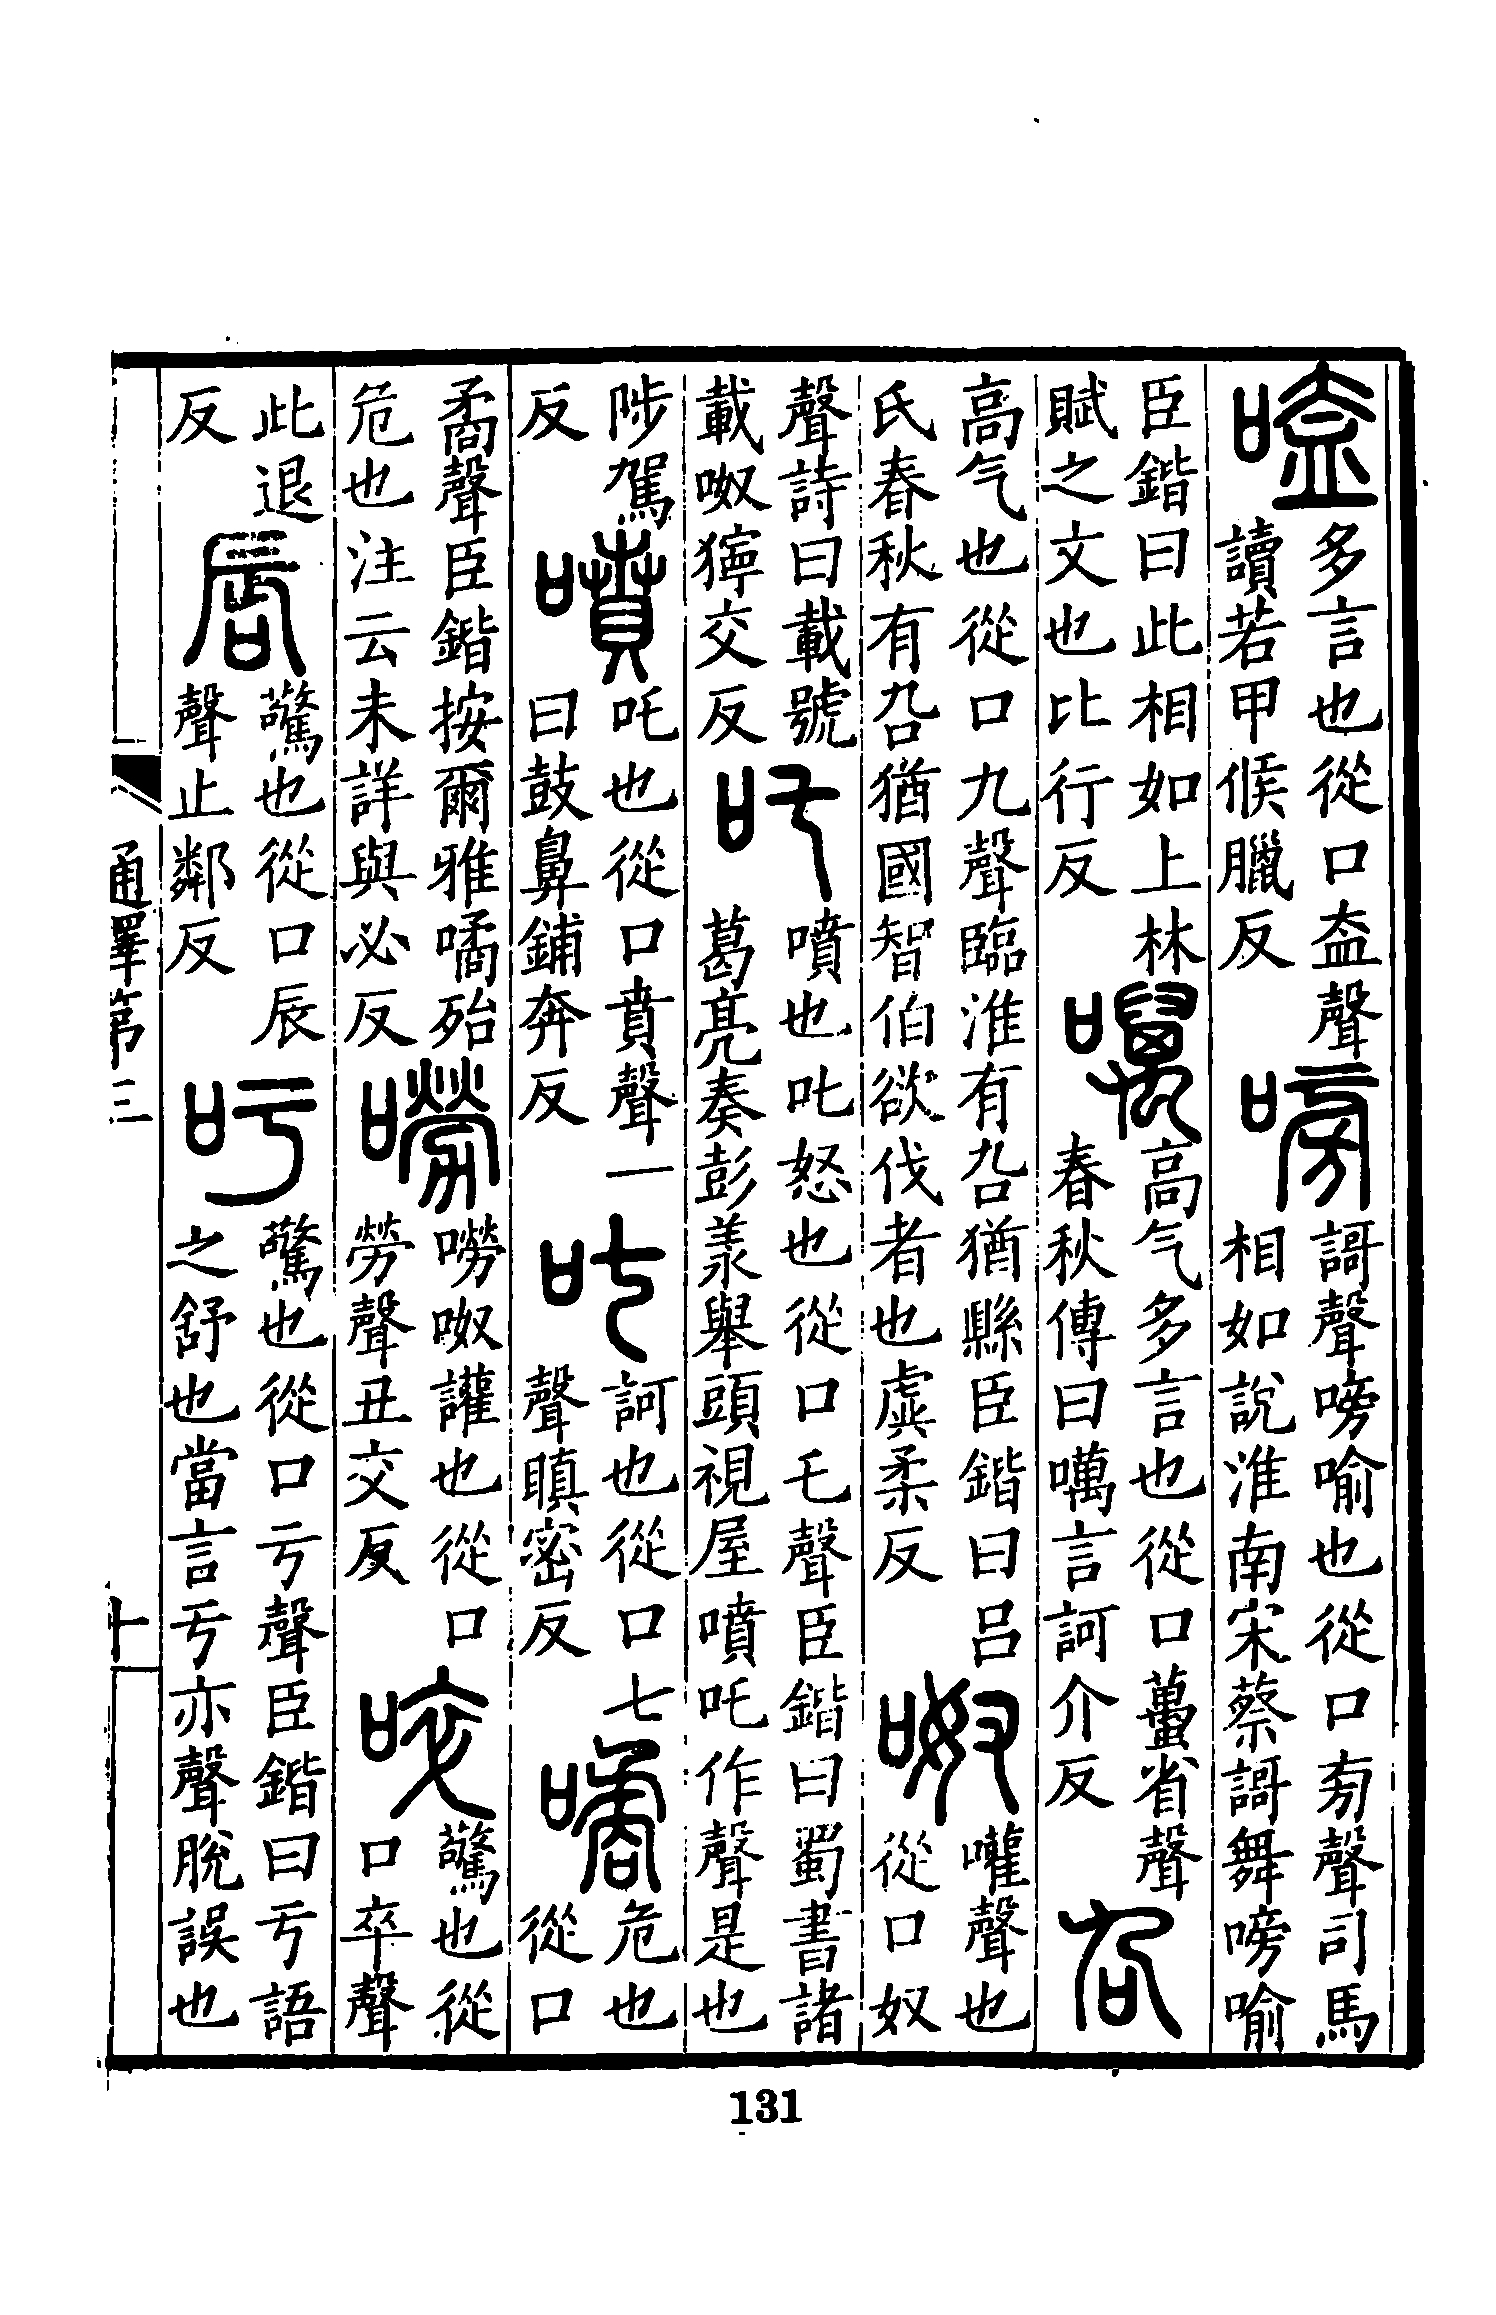 嗑 多言也從口盍聲
讀若甲候臘反
嗙 謌聲嗙喻也從口㫄聲司馬
相如說淮南宋蔡謌舞嗙喻
臣鍇曰此相如上林
賦之文也比行反
噧 高气多言也從口蠆省聲
春秋傳曰噧言訶介反
叴
高气也從口九聲臨淮有叴猶縣臣鍇曰呂
氏春秋有叴猶國智伯欲伐者也虔柔反
呶 嚾聲也
從口奴
聲詩曰載號
載呶獰交反
吒 噴也叱怒也從口乇聲臣鍇曰蜀書諸
葛亮奏彭羕舉頭視屋噴吒作聲是也
陟駕
反
噴 吒也從口賁聲一
曰鼓鼻鋪奔反
叱 訶也從口七
聲瞋密反
噊 危也
從口
矞聲臣鍇按爾雅噊殆
危也注云未詳與必反
嘮 嘮呶讙也從口
勞聲丑交反
啐 驚也從
口卒聲
此退
反
唇 驚也從口辰
聲止鄰反
吁 驚也從口亏聲臣鍇曰亏語
之舒也當言亏亦聲脫誤也
通釋第三
十
131